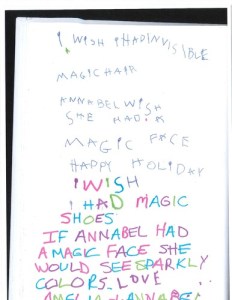 I WISH I HAD INVISIBLE
MAGIC HAIR
ANNABEL WISH
SHE HAD. K
MAGIC FACE
HAPPY HOLIDAY
I WISH
I HAD MAGIC
SHOES
IF ANNABEL HAD
A MAGIC FACE SHE
WOULD SEE SPARKLY
COLORS. LOVE
ANNABEL